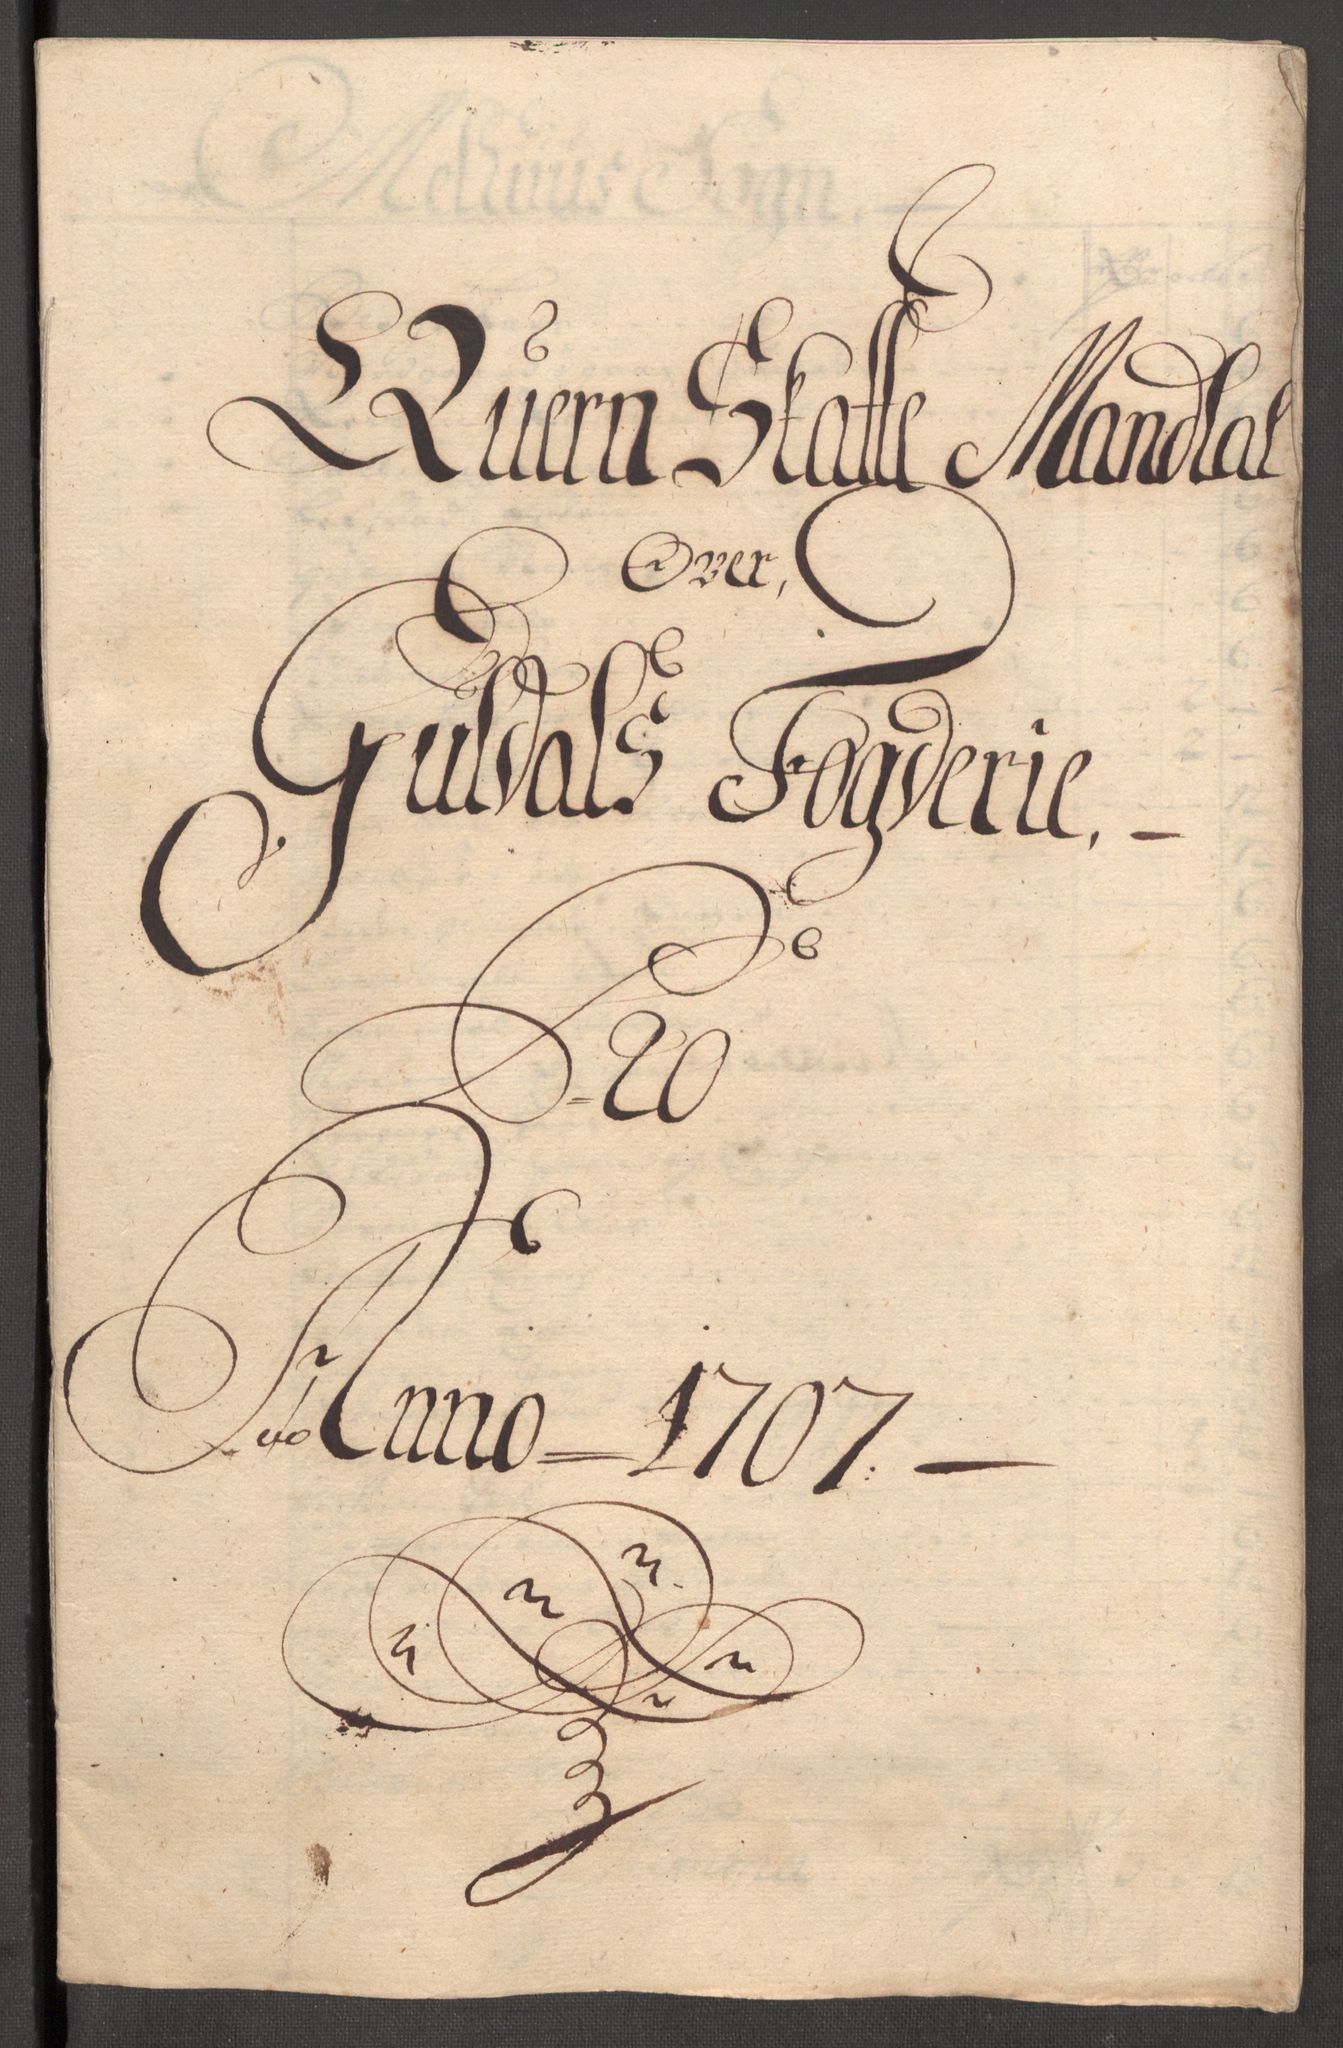 Quern Skatte Mandtal
Over,
Guldals Fogderie, —
Pro
Anno = 1707. —